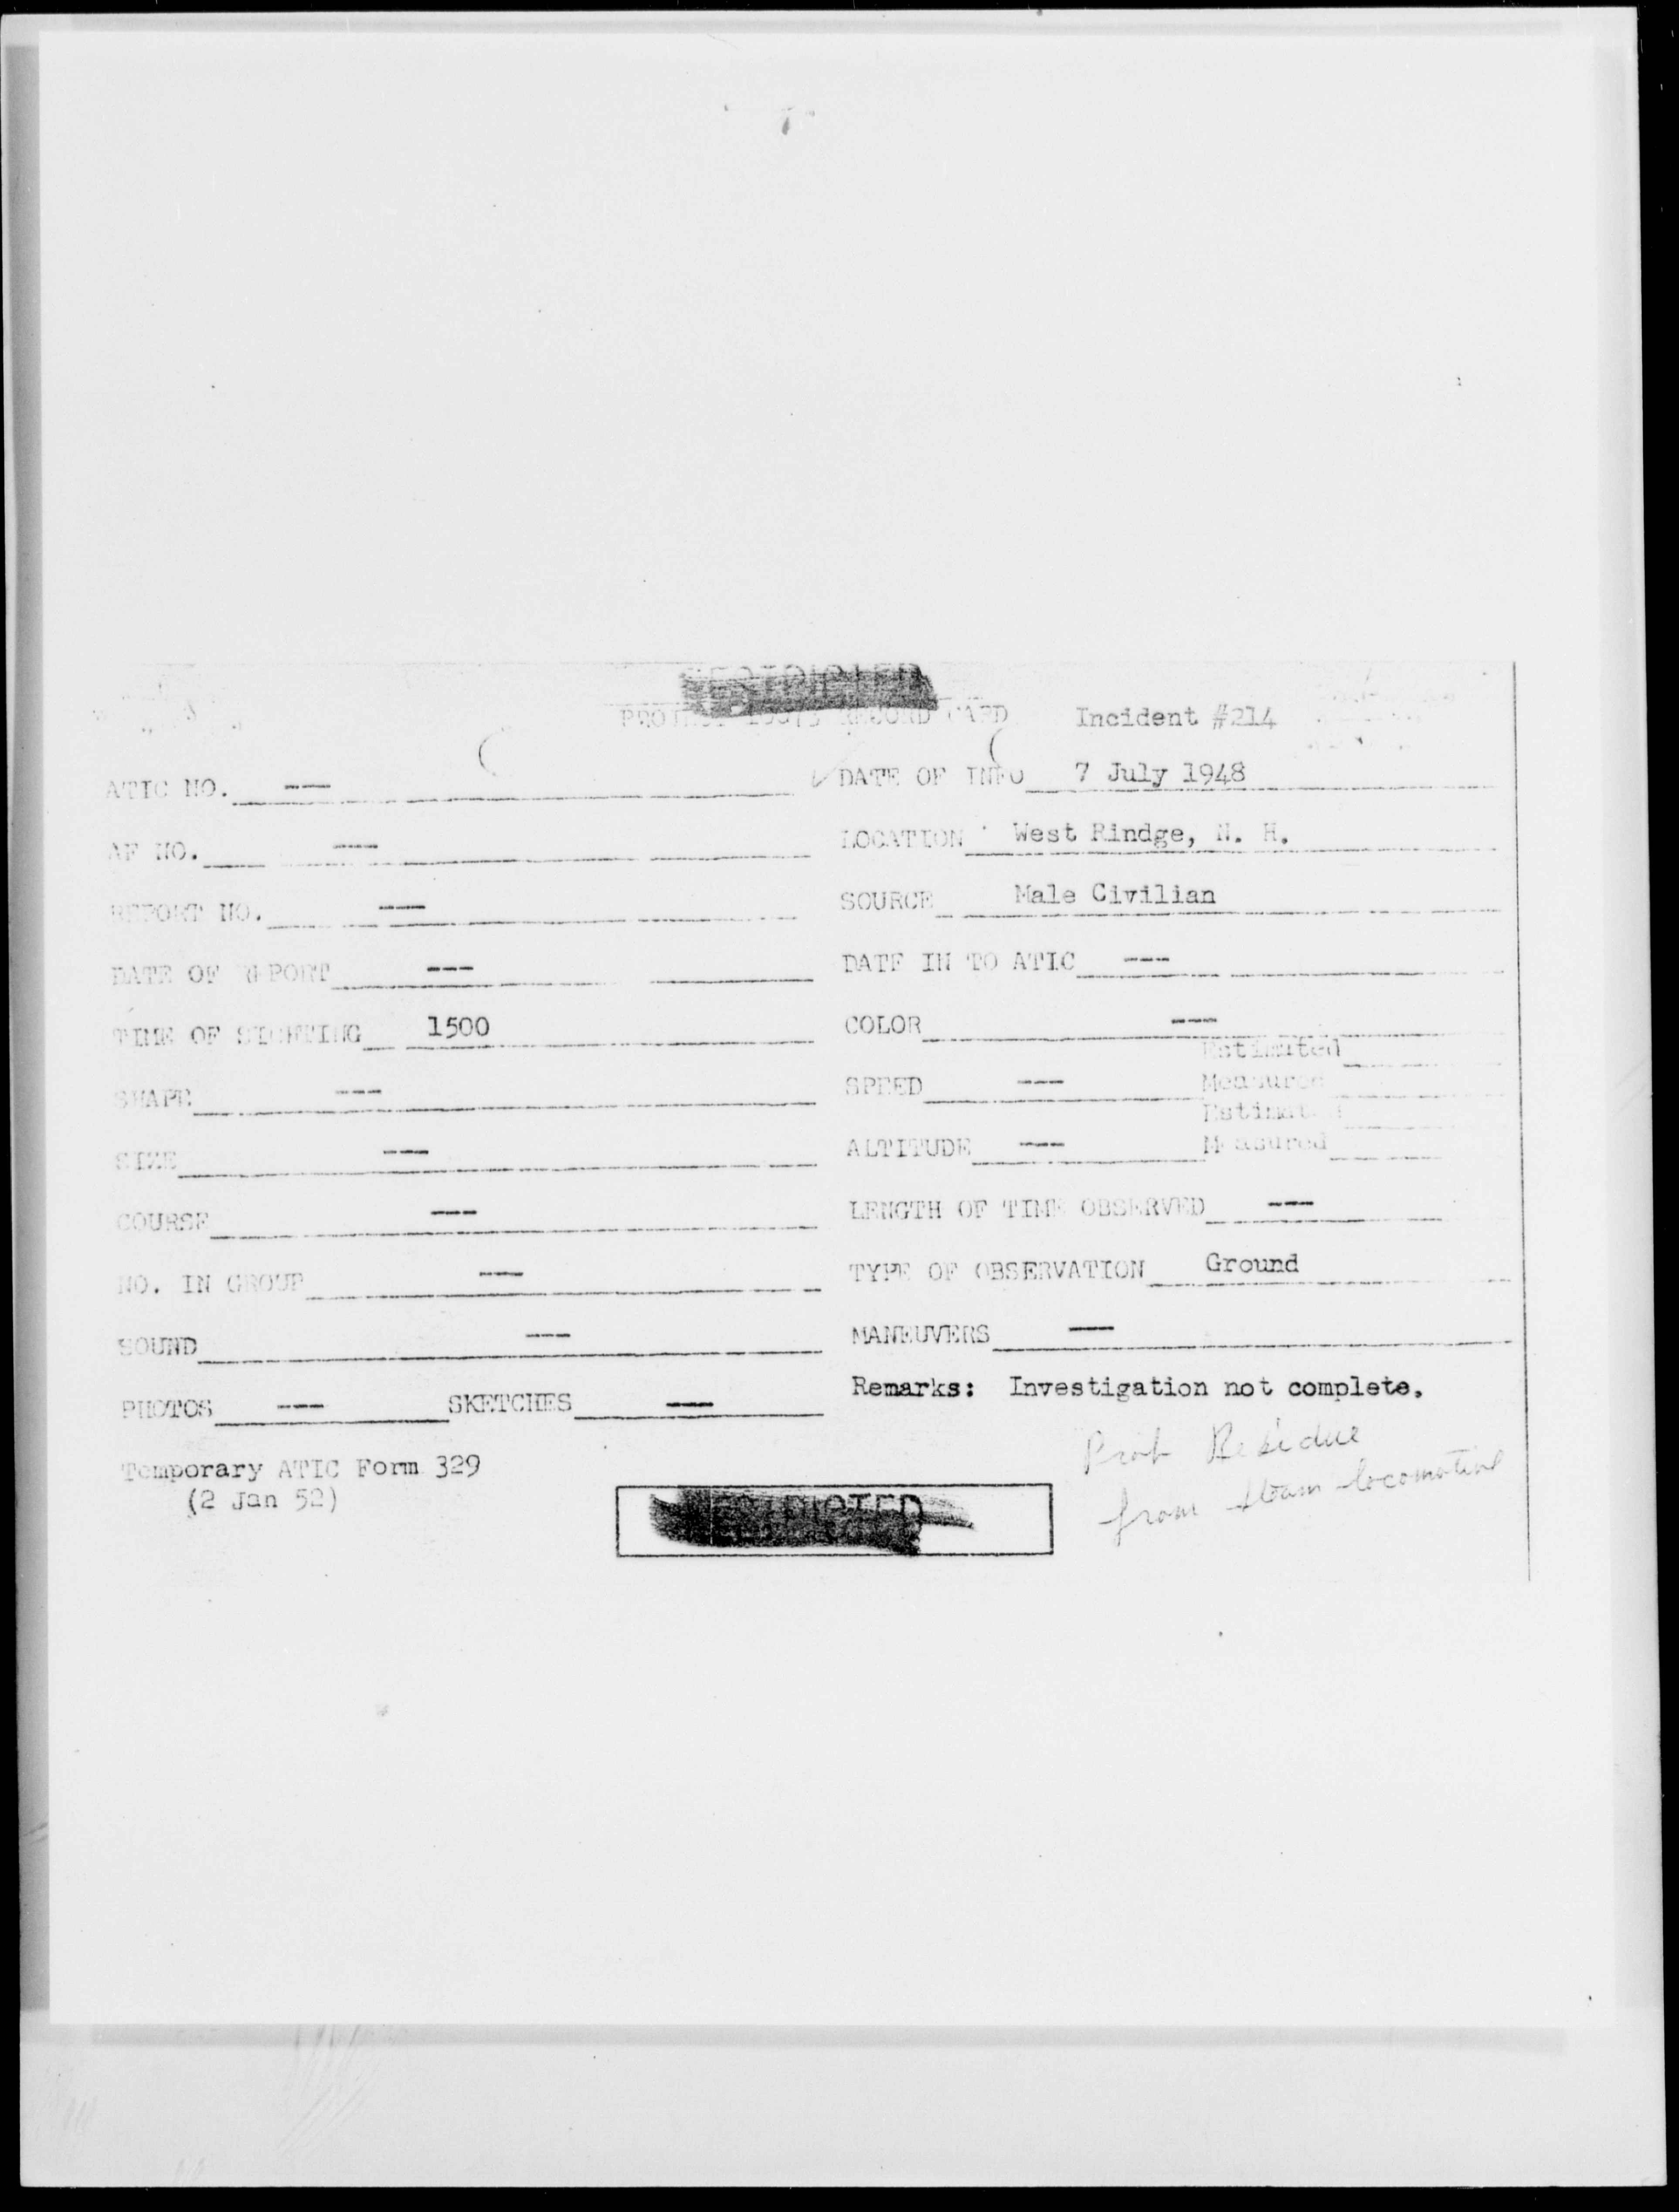 RESTRICTED
PROJECT 10073 RECORD CARD Incident #214
ATIC NO. --
DATE OF INFO 7 July 1948
AF NO. ---
LOCATION West Rindge, N. H.
REPORT NO. ---
SOURCE Male Civilian
DATE OF REPORT ---
DATE IN TO ATIC ---
TIME OF SIGHTING 1500
COLOR ---
SHAPE ---
SPEED --- Estimated
Measured
SIZE ---
ALTITUDE --- Estimated
Measured
COURSE ---
LENGTH OF TIME OBSERVED ---
NO. IN GROUP ---
TYPE OF OBSERVATION Ground
SOUND ---
MANEUVERS ---
PHOTOS --- SKETCHES ---
Remarks: Investigation not complete.
Prob Residue
from steam locomotive
Temporary ATIC Form 329
(2 Jan 52)
RESTRICTED